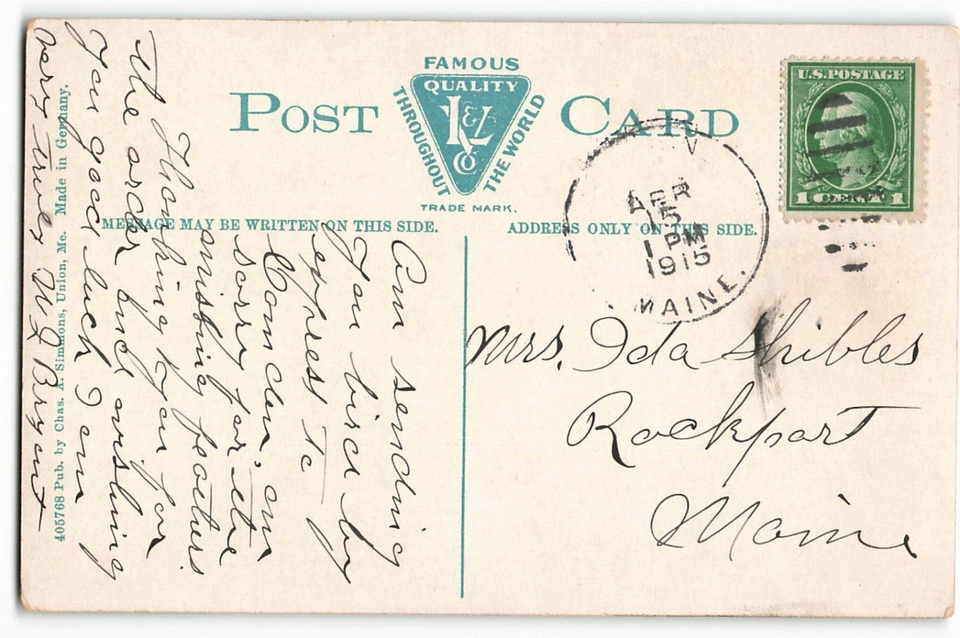 FAMOUS
QUALITY
THROUGHOUT THE WORLD
K & L
Co
TRADE MARK.
POST CARD
U.S. POSTAGE
1 CENT 1
MESSAGE MAY BE WRITTEN ON THIS SIDE.
ADDRESS ONLY ON THIS SIDE.
APR
15
1 PM
1915
MAINE.
Mrs. Ida Shibles
Rockport
Maine
Am sending
you bird by
express to
Camden, am
sorry for the
missing feathers
Thanking you for
the order and wishing
you good luck I am
very truly W J Bryant
405768 Pub. by Chas. A. Simmons, Union, Me. Made in Germany.